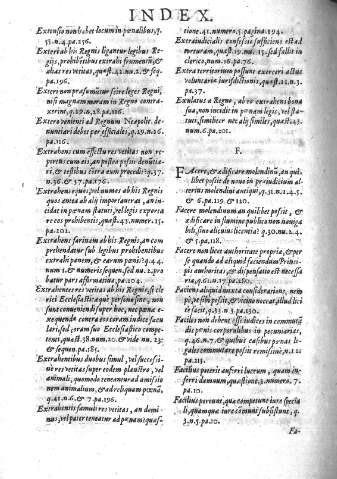 INDEX.
Extensio non habet locum in penalibus, q.
53. n. 4. pa. 256.
Exteri ab his Regnis ligantur legibus Re-
gijs, prohibitibus extrahi frumentũ, &
alias res vetitas, quæst. 42. nu. 2. & seq.
pa. 196.
Exteri non præsumũtur scire leges Regni,
nisi magnam moram in Regno contra-
xerint, q. 29. nu. 16. pa. 116.
Exteri venientes ad Regnum
denuntiari debet per officiales, q. 29. n. 26.
pa. 116.
Extrahens cum effectu res vetitas non re-
pertus cum eis, an postea possit denũtia-
ri, & testibus citra eum procedi: q. 37.
n. 56. & 57. pa. 176.
Extrahens equos, vel nummos ab his Regnis
quos antea ab alijs importaverat, an in-
cidat in pœnam statuti, vel legis expresse
res eos prohibentis, quæst. 43. numer. 15.
pa. 202.
Extrahens farinam ab his Regnis, an com
prehendatur sub legibus prohibentibus
extrahi panem, & earum panis: q. 44.
num. 1. & numeris sequen. sed nu. 2. pro
batur pars affirmativa, pa. 204.
Extrahentes res vetitas ab his Regnis, si cle
rici Ecclesiasticæque personæ sint, non
sunt conveniendi super hoc, nec pœna ex
exequenda contra eos coram iudice sæcu
lari, sed coram suo Ecclesiastico compe-
tenti, quæst. 38. num. 20. & vide nu. 23.
& sequen. pa. 185.
Extrahentibus duobus simul, vel successi-
ve res vetitas super eodem plaustro, vel
animali, quomodo teneantur ad amissio
nem animalium, & ad reliquam pœnã,
q. 41. n. 6. & 7. pa. 196.
Extrahentis famuli res vetitas, an domi-
nus, vel pater teneatur ad pœnam quæs-
tione. 41. numero. 5. pagina. 194.
Extraiudicialis confessio sufficiens est ad
torturam, quæst. 19. num. 15. sed fallit in
clerico, num. 16. pa. 76.
Extra territorium possunt exerceri actus
voluntariæ iurisdictionis, quæst. 12. n. 3.
pa. 37.
Exulatus a Regno, ab eo extrahens bona
sua, non incidit in pœnam legis, vel sta-
tuti, similiter nec alij similes, quæst. 43.
num. 6. pa. 201.
F.
FAcere, & ædificare molendinũ, an qui-
libet possit de novo in præiudicium al-
terius molendini antiqui, q. 31. n. 1. 4. 5.
& 6. pa. 119. & 120.
Facere molendinum an quilibet possit, &
ædificare in suo, vel in flumine nõ publi-
co, sine alicuius licentia: q. 30. nu. 2. 4.
& pa. 118.
Facere non licet authoritate propria, & per
se quando ad aliquid faciendum Princi-
pis authoritas, & dispensatio est necessa
ria, q. 61. n. 13. pa. 282.
Faciens aliquid iuxta considerationem, ne-
mo potest, & vicino noceat, illud lice-
re facit, q. 33. n. 3. pa. 130.
Facilis non debent esse iudices in commutã
dis pœnis corporalibus in pecuniarias,
q. 46. n. 7. & quibus casibus pœnas le-
gales commutare possit remissive, n. 12
pa. 215.
Facilius poterit auferri lucrum, quam in-
ferri damnum, quæstione, 3. numero. 7.
pa. 12.
Facilius percunt, quæ competunt iure specia
li, quam quæ iure communi subsistunt, q.
3. n. 5. pa. 20.
Fa-